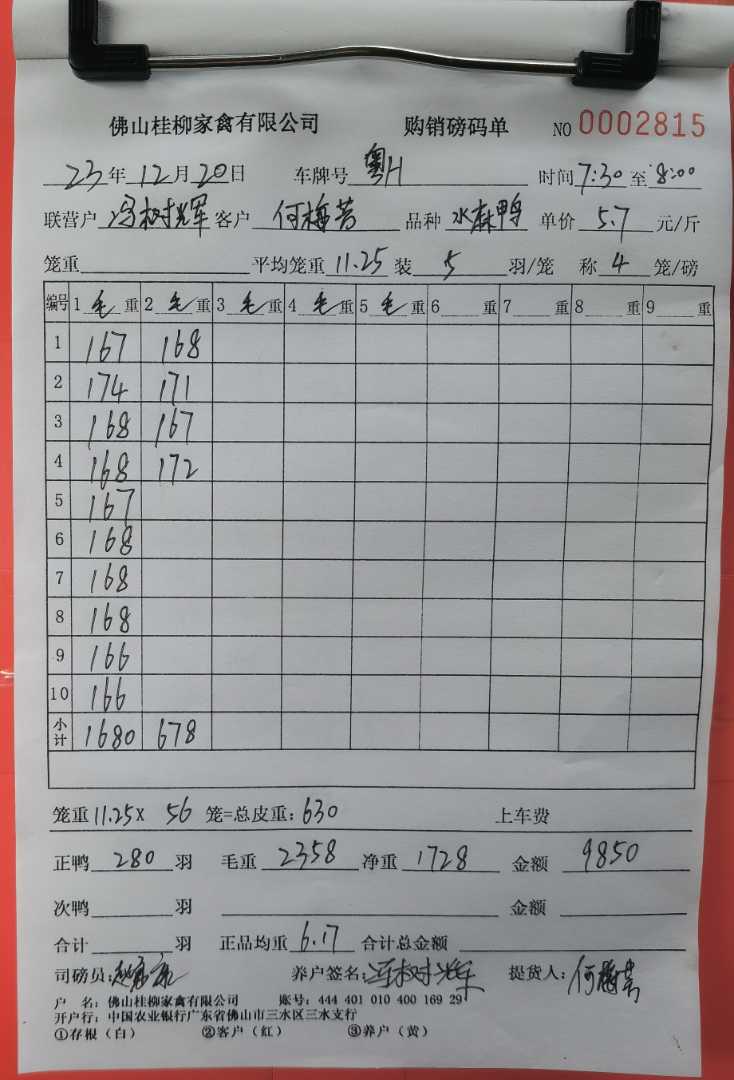 佛山桂柳家禽有限公司 购销磅码单 NO 0002815
23年12月20日 车牌号 粤H 时间 7:30 至 8:00
联营户 冯树辉 客户 何梅芳 品种 水麻鸭 单价 5.7 元/斤
笼重 平均笼重 11.25 装 5 羽/笼 称 4 笼/磅
编号 1 毛 重 2 毛 重 3 毛 重 4 毛 重 5 毛 重 6 重 7 重 8 重 9 重
1 167 168
2 174 171
3 168 167
4 168 172
5 167
6 168
7 168
8 168
9 166
10 166
小计 1680 678
笼重 11.25 X 56 笼=总皮重: 630 上车费
正鸭 280 羽 毛重 2358 净重 1728 金额 9850
次鸭 羽 金额
合计 羽 正品均重 6.17 合计总金额
司磅员: 养户签名: 提货人: 何梅芳
户 名: 佛山桂柳家禽有限公司 账号: 444 401 010 400 169 29
开户行: 中国农业银行广东省佛山市三水区三水支行
①存根(白) ②客户(红) ③养户(黄)